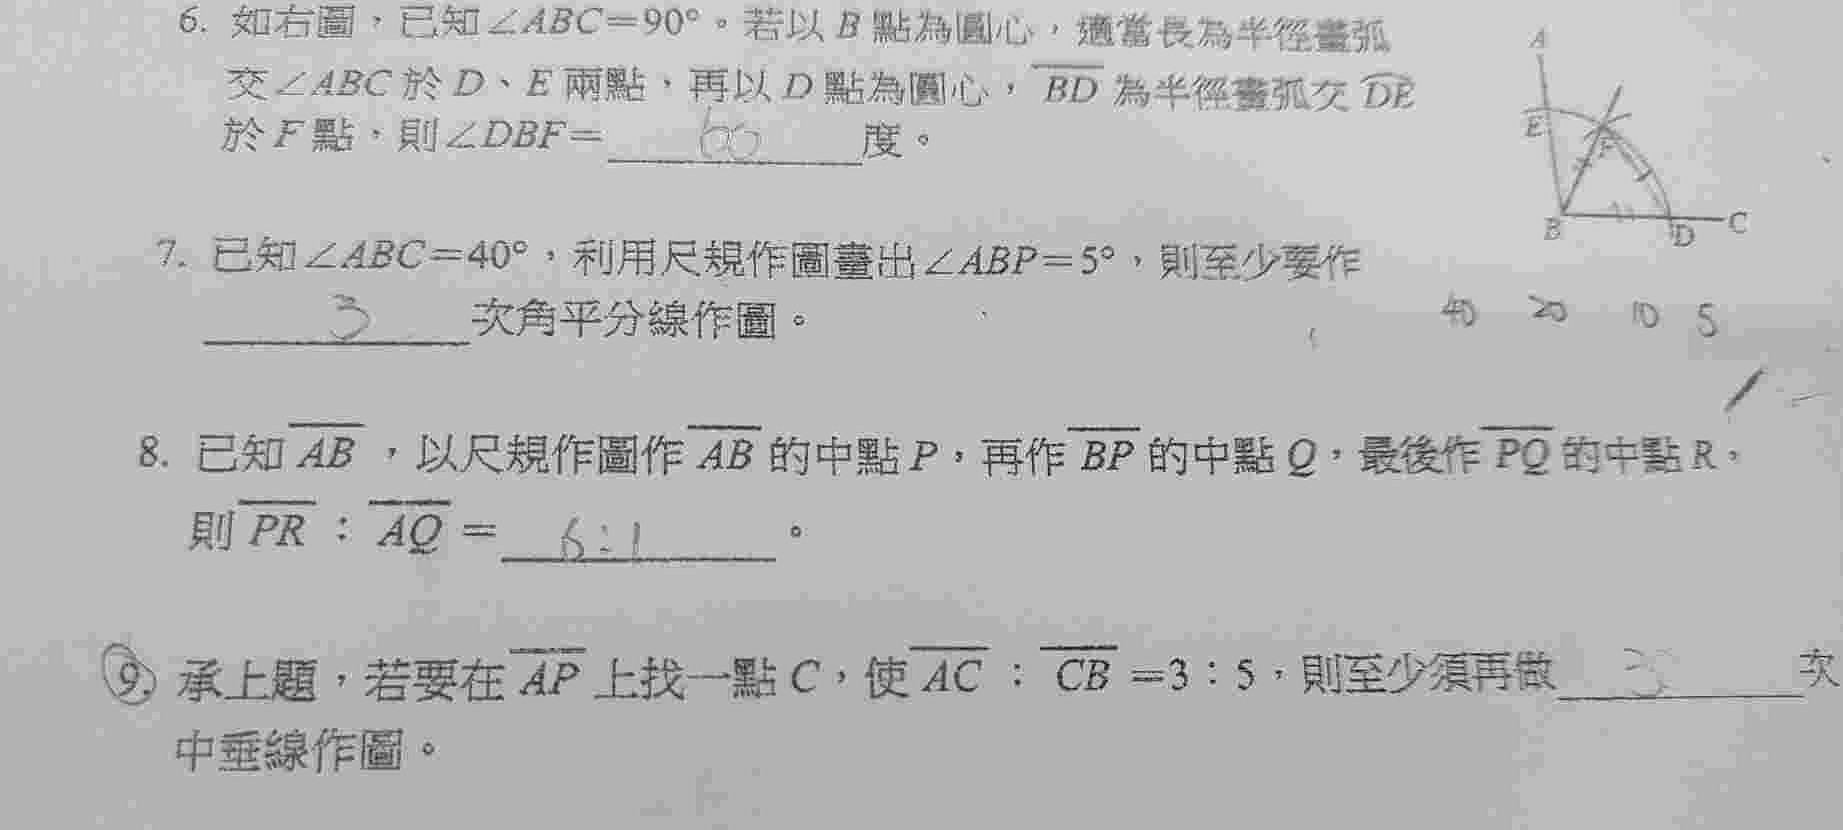 6. 如右圖，已知∠ABC=90°。若以 B 點為圓心，適當長為半徑畫弧
交∠ABC 於 D、E 兩點，再以 D 點為圓心，BD 為半徑畫弧交 DE
於 F 點，則∠DBF= 60 度。
A
E
F
B
D
C
7. 已知∠ABC=40°，利用尺規作圖畫出∠ABP=5°，則至少要作
3 次角平分線作圖。
40 20 10 5
8. 已知 AB ，以尺規作圖作 AB 的中點 P，再作 BP 的中點 Q，最後作 PQ 的中點 R，
則 PR：AQ = 6:1 。
9. 承上題，若要在 AP 上找一點 C，使 AC：CB =3：5，則至少須再做 3 次
中垂線作圖。